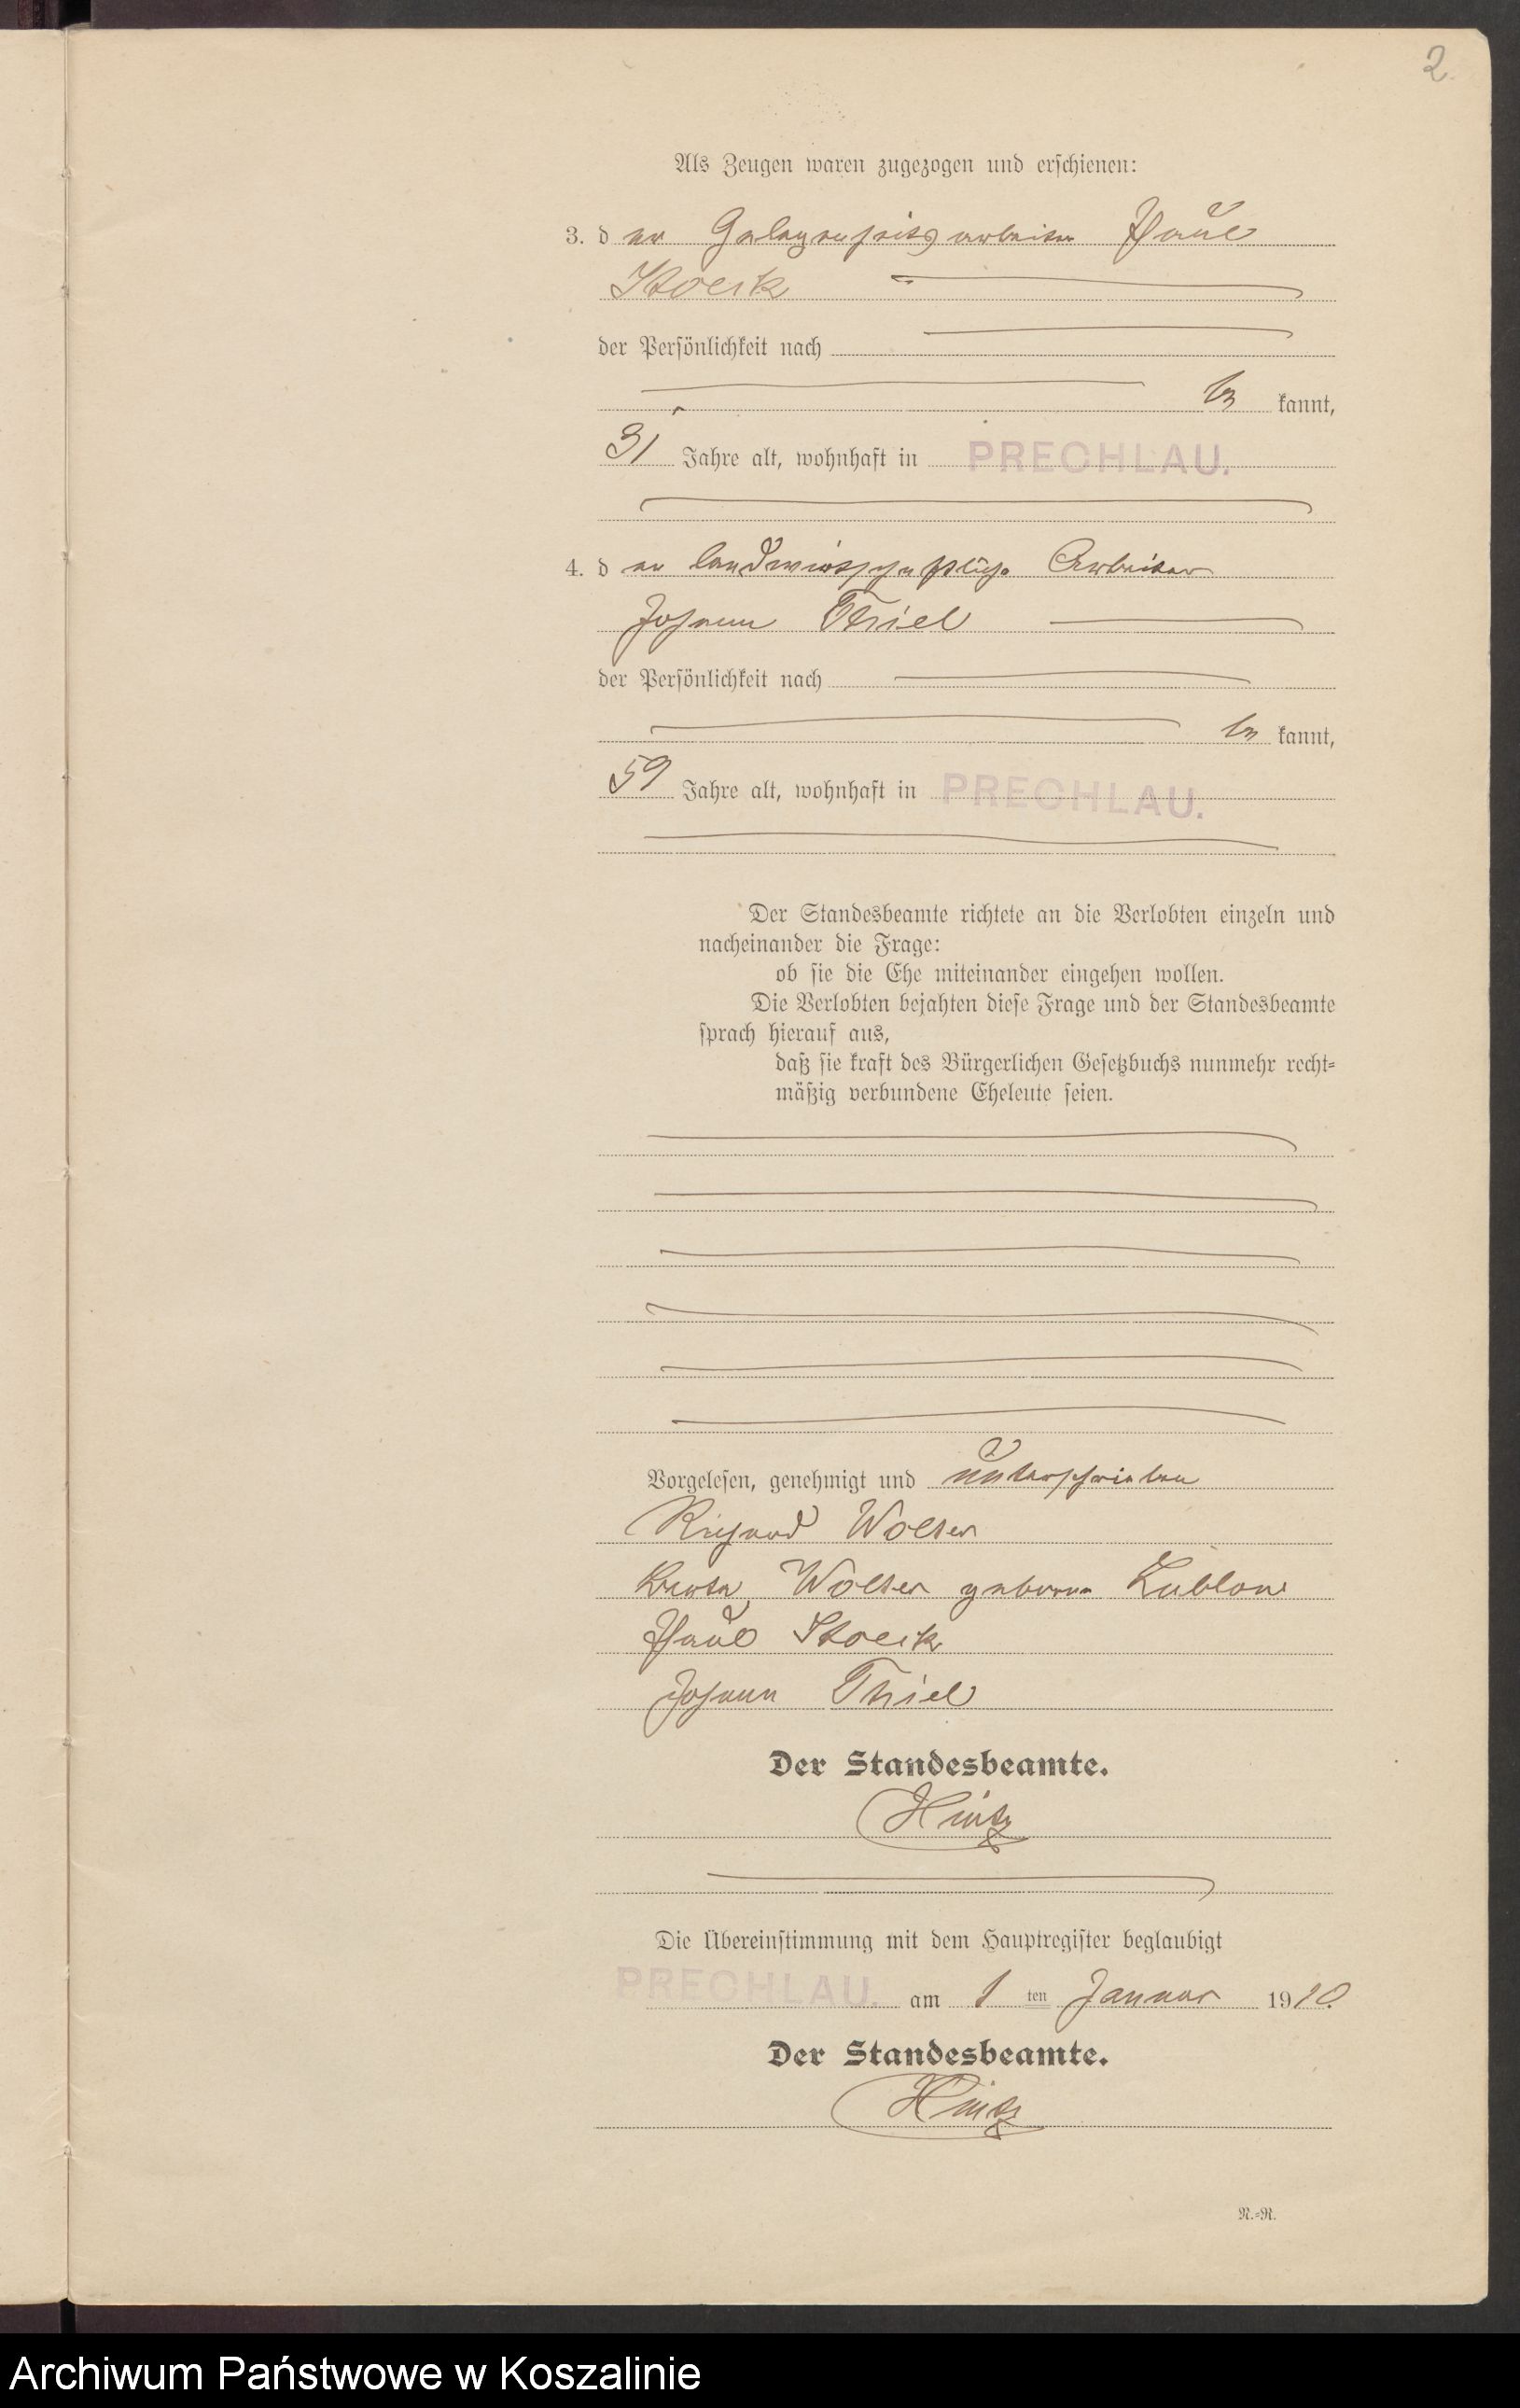 2
Als Zeugen waren zugezogen und erschienen:
3. d er Gelegenheitsarbeiter Paul
Stoeck
der Persönlichkeit nach
be kannt,
31 Jahre alt, wohnhaft in PRECHLAU.
4. d er landwirtschaftliche Arbeiter
Johann Thiel
der Persönlichkeit nach
be kannt,
59 Jahre alt, wohnhaft in PRECHLAU.
Der Standesbeamte richtete an die Verlobten einzeln und
nacheinander die Frage:
ob sie die Ehe miteinander eingehen wollen.
Die Verlobten bejahten diese Frage und der Standesbeamte
sprach hierauf aus,
daß sie kraft des Bürgerlichen Gesetzbuchs nunmehr recht-
mäßig verbundene Eheleute seien.
Vorgelesen, genehmigt und unterschrieben
Richard Wolter
Wolter geborne
Paul Stoeck
Johann Thiel
Der Standesbeamte.
Hintz
Die Übereinstimmung mit dem Hauptregister beglaubigt
PRECHLAU. am 1 ten Januar 1910.
Der Standesbeamte.
Hintz
N.-R.
Archiwum Państwowe w Koszalinie